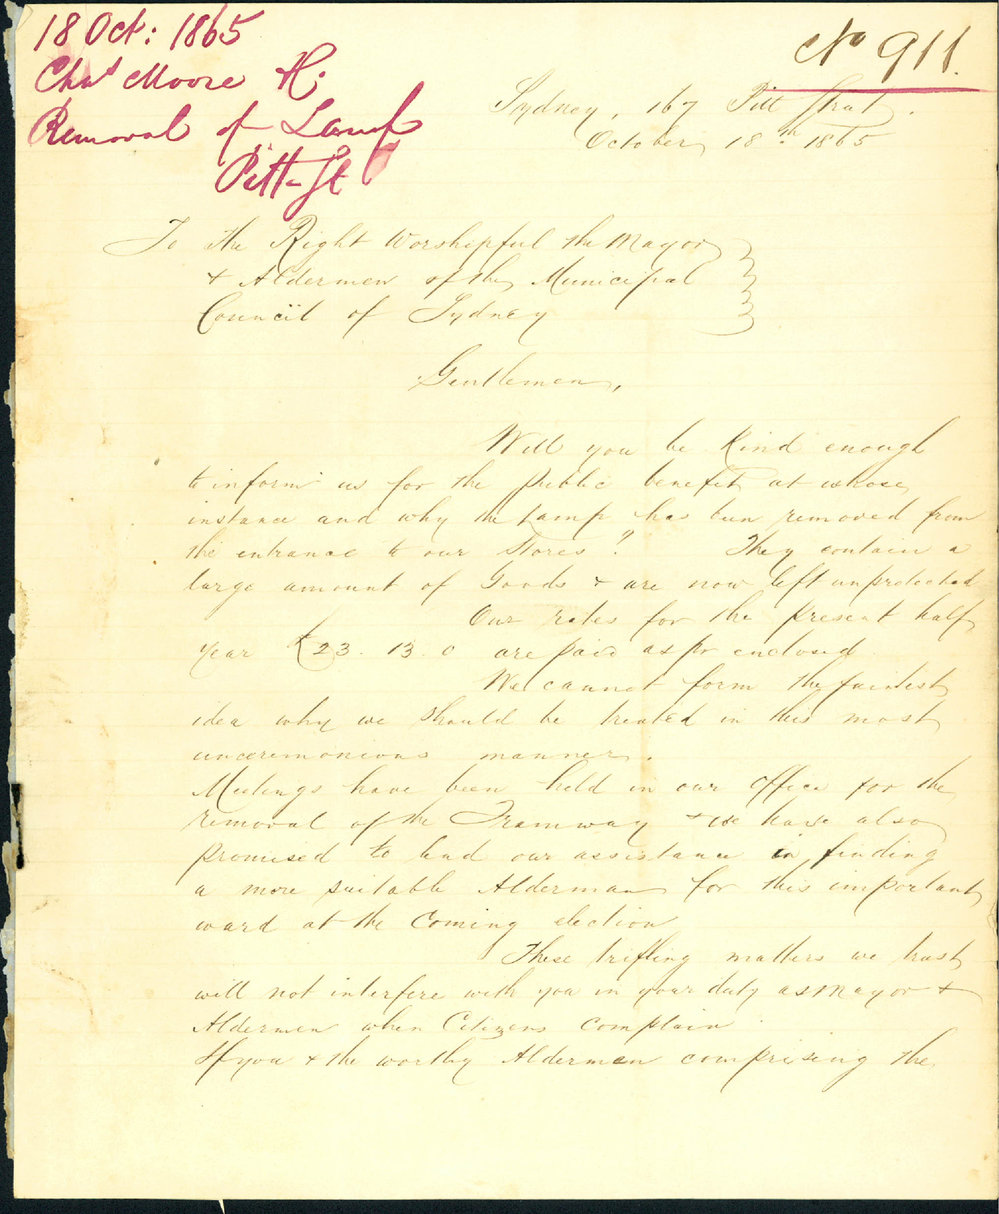 18 Oct: 1865
Chas Moore
Removal of Lamp
Pitt St
No 911.
Sydney, 167 Pitt Street.
October 18th 1865
To the Right Worshipful the Mayor
& Aldermen of the Municipal
Council of Sydney
Gentlemen,
Will you be kind enough
to inform us for the public benefit at whose
instance and why the Lamp has been removed from
the entrance to our Stores? They contain a
large amount of Goods & are now left unprotected
Our rates for the present half
year £23.13.0 are paid as pr enclosed.
We cannot form the faintest
idea why we should be treated in this most
unceremonious manner.
Meetings have been held in our Office for the
removal of the Tramway & we have also
promised to lend our assistance in finding
a more suitable Alderman for this important
ward at the Coming election
These trifling matters we trust
will not interfere with you in your duty as Mayor &
Aldermen when Citizens complain.
If you & the worthy Aldermen comprising the